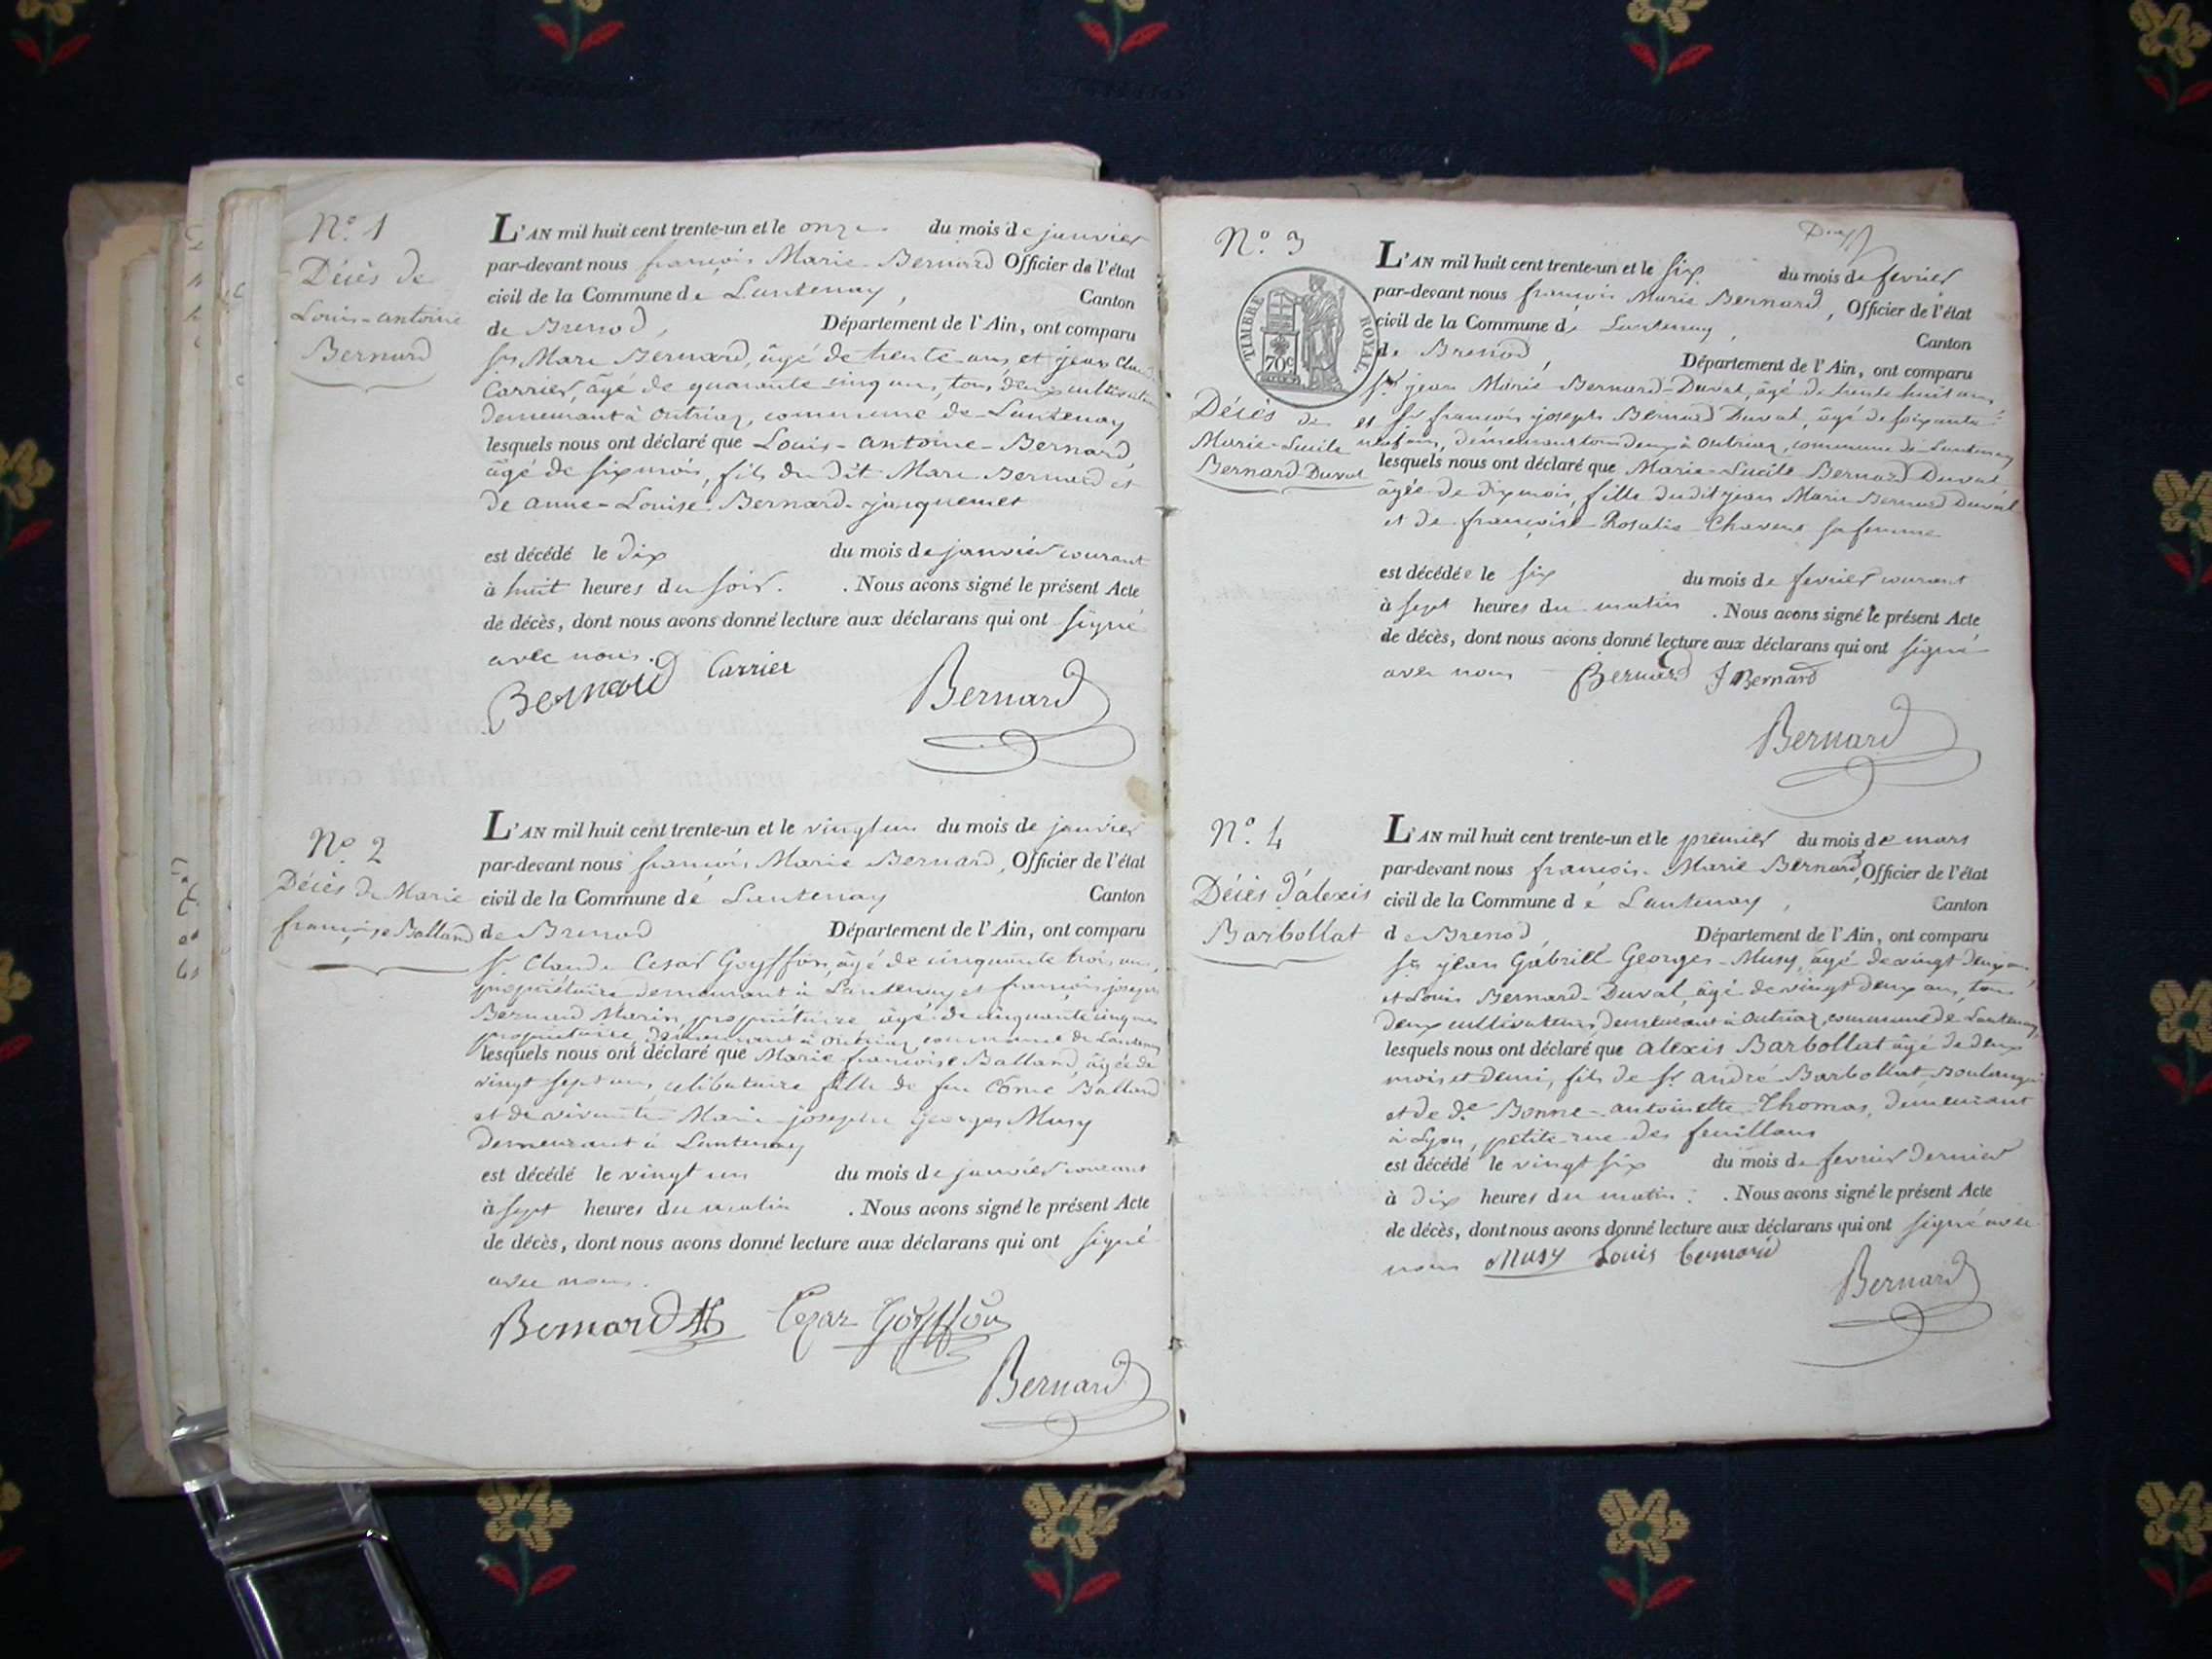 N.º 1
Décès de
Louis-antoine
Bernard
L'AN mil huit cent trente-un et le onze du mois de janvier
par-devant nous françois Marie Bernard Officier de l'état
civil de la Commune de Lantenay, Canton
de Brenod, Département de l'Ain, ont comparu
Srs Marc Bernard, âgé de trente ans, et jean Claude
Carrier, âgé de quarante cinq ans, tous deux cultivateurs
demeurant à outriaz, commune de Lantenay
lesquels nous ont déclaré que Louis-antoine-Bernard,
âgé de six mois, fils du dit Marc Bernard et
de anne-Louise Bernard-jacquemet
est décédé le dix du mois de janvier courant
à huit heures du soir. . Nous avons signé le présent Acte
de décès, dont nous avons donné lecture aux déclarans qui ont signé
avec nous.
Bernard Carrier Bernard
N.º 2
Décès de Marie
françoise Balland
L'AN mil huit cent trente-un et le vingt un du mois de janvier
par-devant nous françois Marie Bernard, Officier de l'état
civil de la Commune dé Lantenay Canton
de Brenod Département de l'Ain, ont comparu
Sr. Claude Cesar Goyffon, âgé de cinquante trois ans,
propriétaire demeurant à Lantenay et françois joseph
Bernard Marin, propriétaire âgé de cinquante cinq ans
propriétaire, demeurant à outriaz commune de Lantenay
lesquels nous ont déclaré que Marie françoise Balland, âgée de
vingt sept ans, célibataire fille de feu Côme Balland
et de vivante Marie josephe georges Musy
demeurant à Lantenay
est décédé le vingt un du mois de janvier courant
à sept heures du matin . Nous avons signé le présent Acte
de décès, dont nous avons donné lecture aux déclarans qui ont signé
avec nous.
Bernard Cezar Goyffon
Bernard
N.º 3
TIMBRE ROYAL
70c
Décès de
Marie-Lucile
Bernard-Duval
L'AN mil huit cent trente-un et le six du mois de fevrier
par-devant nous françois Marie Bernard, Officier de l'état
civil de la Commune dé Lantenay, Canton
de Brenod, Département de l'Ain, ont comparu
Sr. jean Marie Bernard-Duval, âgé de trente huit ans
et Sr françois joseph Bernard Duval, âgé de soixante
neuf ans, demeurant tous deux à outriaz, commune de Lantenay
lesquels nous ont déclaré que Marie-Lucile Bernard Duval
âgée de dix mois, fille dudit jean Marie Bernard Duval
et de françoise Rosalie Chavent sa femme
est décédée le six du mois de fevrier courant
à sept heures du matin . Nous avons signé le présent Acte
de décès, dont nous avons donné lecture aux déclarans qui ont signé
avec nous Bernard J Bernard
Bernard
N.º 4
Décès d'alexis
Barbollat
L'AN mil huit cent trente-un et le premier du mois de mars
par-devant nous françois Marie Bernard, Officier de l'état
civil de la Commune dé Lantenay, Canton
de Brenod, Département de l'Ain, ont comparu
Srs jean Gabriel Georges-Musy, âgé de vingt deux ans
et Louis Bernard-Duval, âgé de vingt deux ans, tous
deux cultivateurs demeurant à outriaz, commune de Lantenay,
lesquels nous ont déclaré que alexis Barbollat âgé de deux
mois et demi, fils de Sr. andré Barbollat Boulanger
et de de. Bonne-antoinette Thomas, demeurant
à Lyon, petite rue des feuillans
est décédé le vingt six du mois de fevrier dernier
à dix heures du matin. . Nous avons signé le présent Acte
de décès, dont nous avons donné lecture aux déclarans qui ont signé avec
nous Musy Louis bernard
Bernard